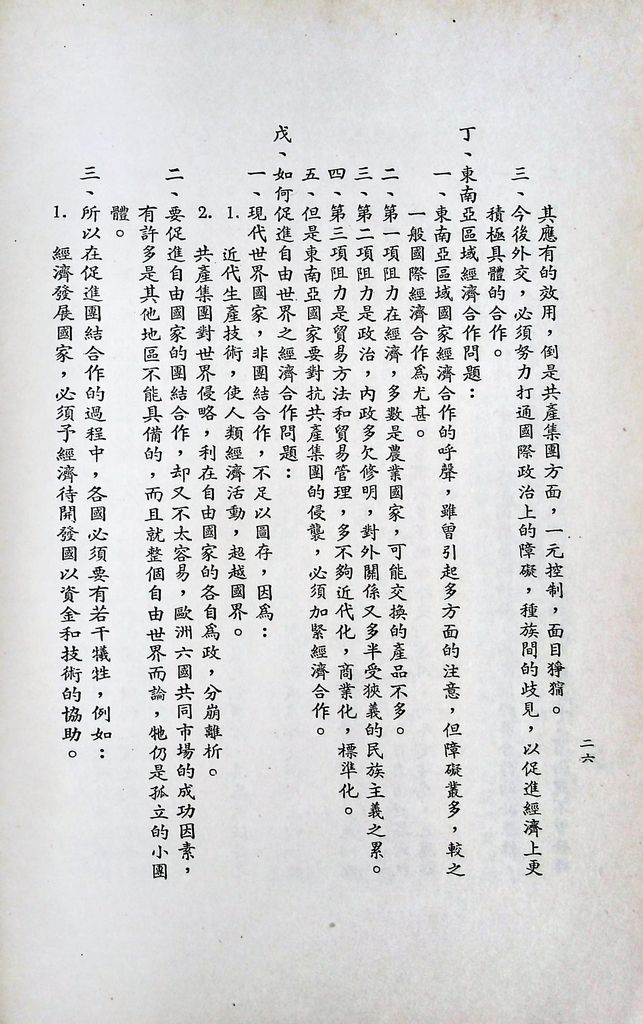 其應有的效用，倒是共產集團方面，一元控制，面目猙獰。
三、今後外交，必須努力打通國際政治上的障礙，種族間的歧見，以促進經濟上更
積極具體的合作。
丁、東南亞區域經濟合作問題：
一、東南亞區域國家經濟合作的呼聲，雖曾引起多方面的注意，但障礙叢多，較之
一般國際經濟合作爲尤甚。
二、第一項阻力在經濟，多數是農業國家，可能交換的產品不多。
三、第二項阻力是政治，內政多欠修明，對外關係又多半受狹義的民族主義之累。
四、第三項阻力是貿易方法和貿易管理，多不夠近代化，商業化，標準化。
五、但是東南亞國家要對抗共產集團的侵襲，必須加緊經濟合作。
戊、如何促進自由世界之經濟合作問題：
一、現代世界國家，非團結合作，不足以圖存，因爲：
1. 近代生產技術，使人類經濟活動，超越國界。
2. 共產集團對世界侵略，利在自由國家的各自爲政，分崩離析。
二、要促進自由國家的團結合作，却又不太容易，歐洲六國共同市場的成功因素，
有許多是其他地區不能具備的，而且就整個自由世界而論，牠仍是孤立的小團
體。
三、所以在促進團結合作的過程中，各國必須要有若干犧牲，例如：
1. 經濟發展國家，必須予經濟待開發國以資金和技術的協助。
二六